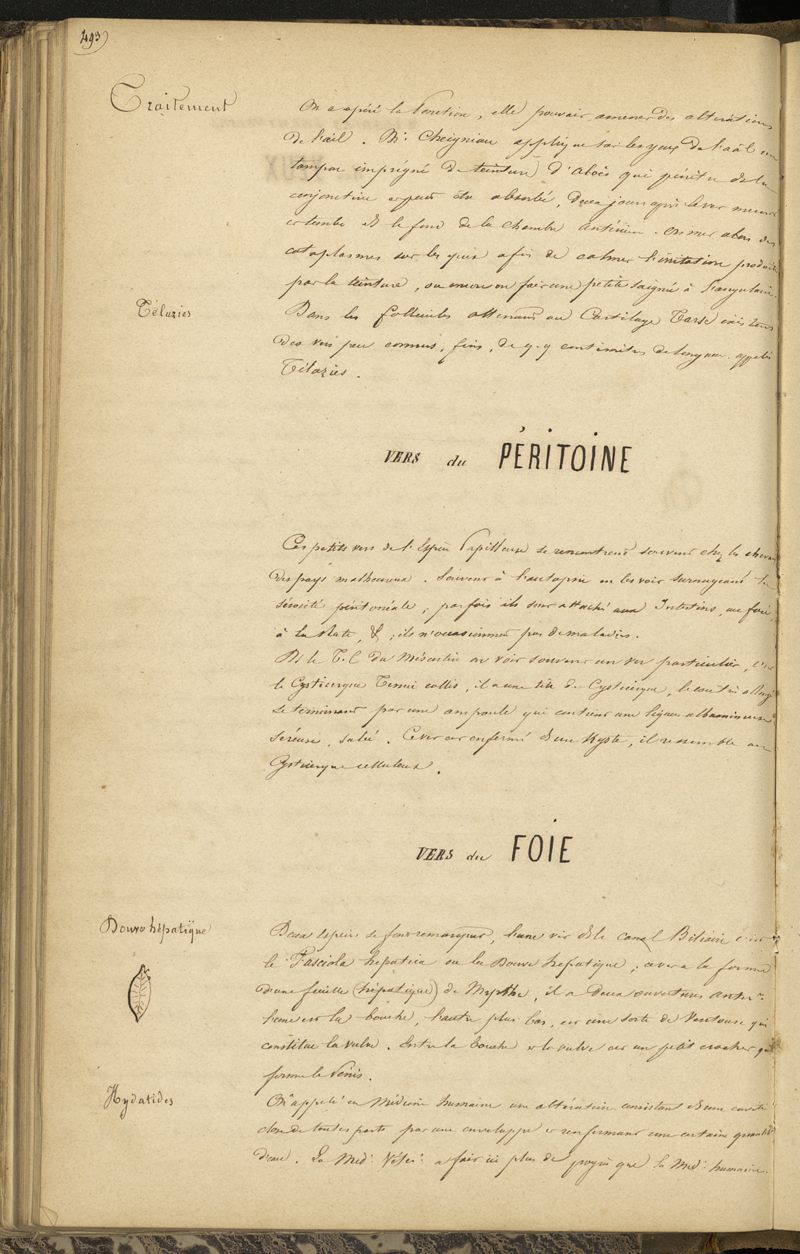 493
Traitement
On a opéré la Ponction, elle pouvait amener des altérations
de l'œil. Mr. Cheigniau applique sur les yeux de l'aâl un
tampon imprégné de teinture d'aloës qui pénètre ds la
conjonctive et peut être absorbé, Deux jours après le ver meurt
et tombe ds le fond de la chambre antérieure. On met alors des
cataplasmes sur les yeux afin de calmer l'irritation produite
par la teinture, ou encore on fait une petite saignée à l'angulaire.
Télazies
Dans les follicules attenant au Cartilage Tarse existent
des vers peu connus, fins, de centimètres de longueur appelés
Télazies.
VERS du PÉRITOINE
Ces petits vers de l'Espèce Papilleuse se rencontrent souvent chez les chevaux
des pays malheureux. Souvent à l'autopsie on les voit surnageant la
sérosité péritonéale, parfois ils sont attaché aux Intestins, au foie,
à la Rate, &; ils n'occasionnent pas de maladies.
Ds le T.C du Mésentère on voit souvent un ver particulier, c'est
le Cysticerque Tenui collis, il a une tête de Cysticerque, le cou très allongé
se terminant par une ampoule qui contient une liqueur albumineuse
séreuse, salée. Ce ver est enfermé ds un Kyste, il ressemble au
Cysticerque celluleux.
VERS du FOIE
Douve hépatique
Deux espèces se font remarquer, l'une vit ds le canal Biliaire c'est
le Fasciola hepatica ou la Douve hépatique; ce ver a la forme
d'une feuille (hépatique) de Myrthe, il a deux ouvertures antres
l'une est la bouche, l'autre plus bas, est une sorte de Ventouse qui
constitue la vulve. Entre la bouche et la vulve est un petit crochet qui
forme le Pénis.
Hydatides
On appelé en Médecine humaine une altération consistant ds une cavité
close de toutes parts par une enveloppe et renfermant une certaine quantité
d'eau. La Med. Vétér. a fait ici plus de progrès que la Med. humaine.